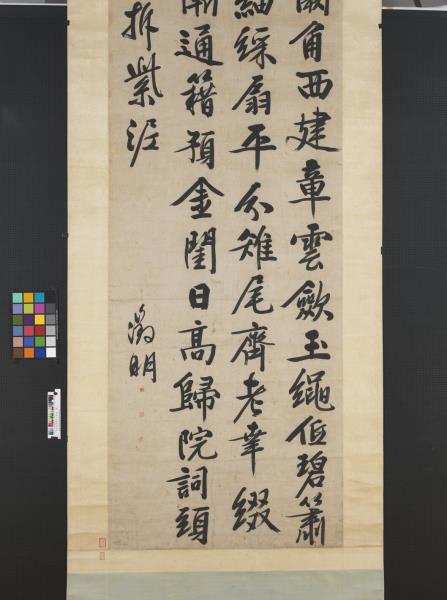 闕角西建章雲斂玉繩低碧簫
細綵扇平分雉尾齊老幸綴
通籍預金閨日高歸院詞頭
拆紫泥
徵明